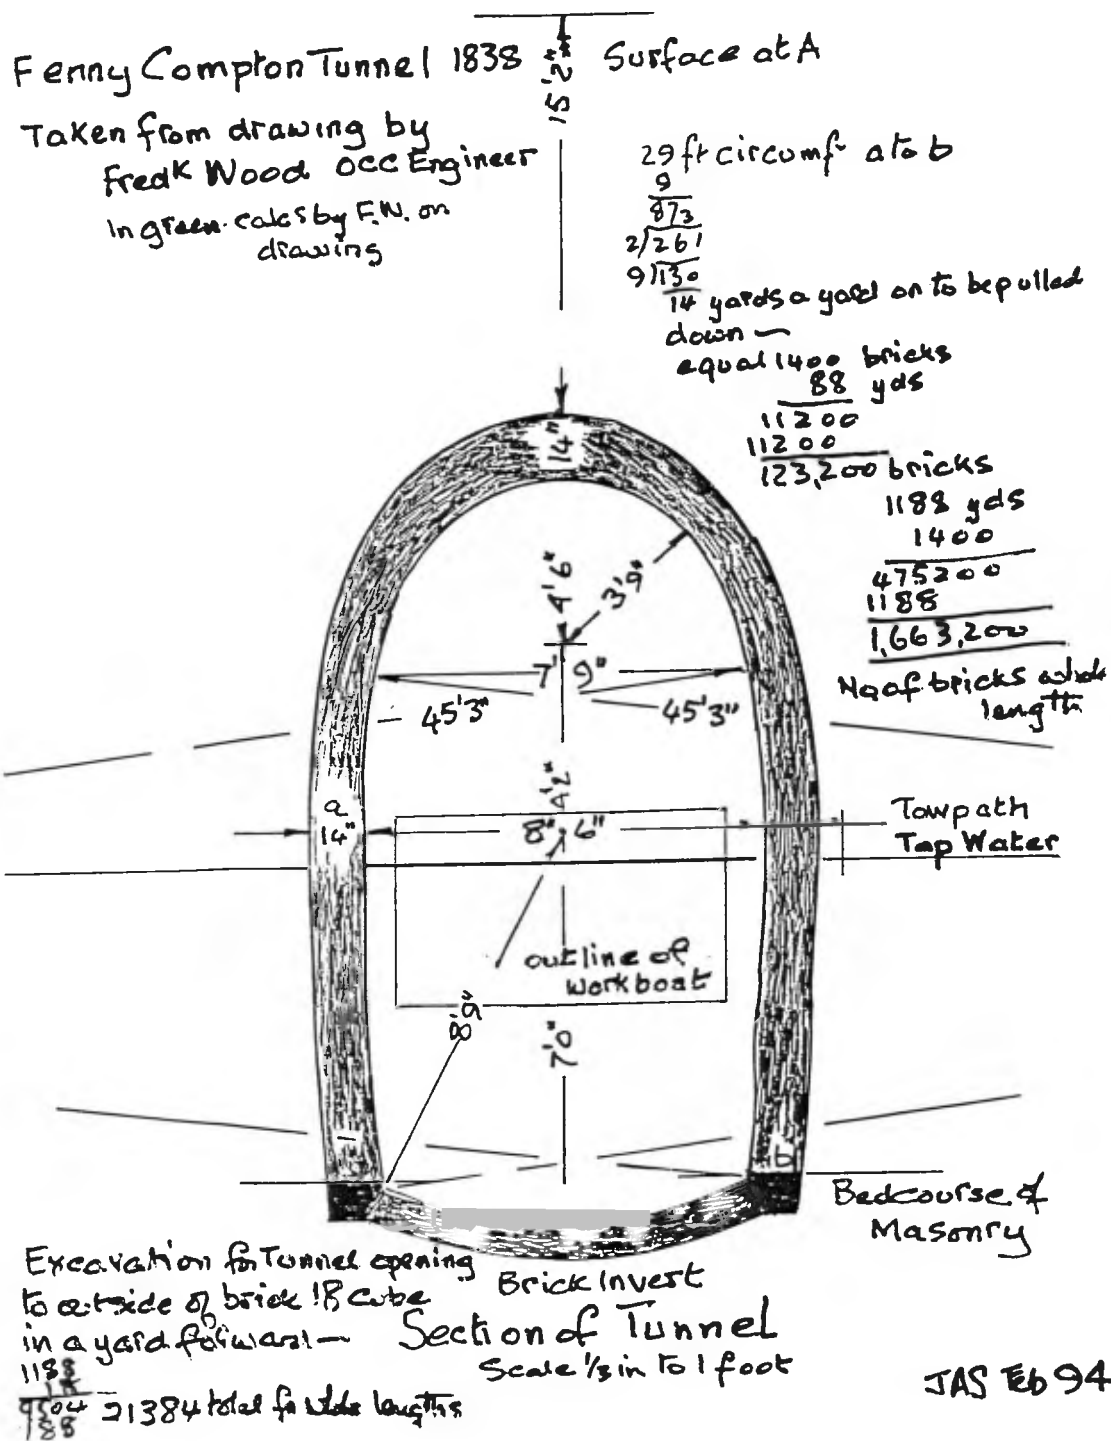 Fenny Compton Tunnel 1838
15'2"
Surface at A
Taken from drawing by
Fredk Wood OCC Engineer
In green calcs by F.W. on
drawing
29 ft circumf atob
9
873
2/261
9/130
14 yards a yard on to be pulled
down —
equal 1400 bricks
88 yds
11200
11200
123,200 bricks
1188 yds
1400
475200
1188
1,663,200
No of bricks whole
length
14"
4'6"
3'9"
7' 9"
45'3"
45'3"
4'2"
a
14"
8' 6"
Towpath
Top Water
outline of
workboat
8'9"
7'0"
b
Bedcourse of
Masonry
Brick Invert
Excavation for Tunnel opening
to outside of brick 18 Cube
in a yard forward —
1188
18
9504
1188
21384 total for whole lengths
Section of Tunnel
Scale 1/3 in to 1 foot
JAS Feb 94